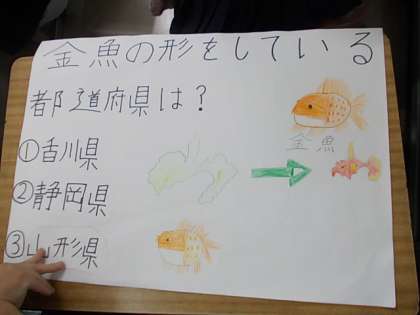 金魚の形をしている
都道府県は?
①香川県
②静岡県
③山形県
金魚